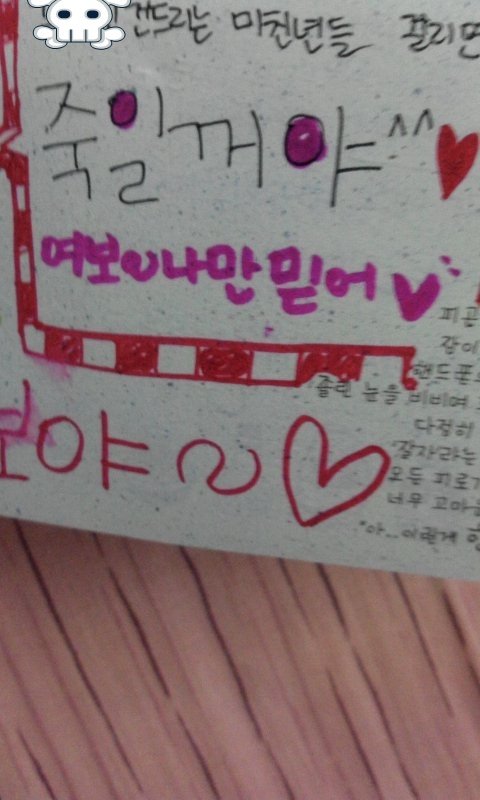 건드리는 미친년들 걸리면
죽일꺼야^^♥
여보~나만 믿어♥
피곤
잠이
핸드폰
졸린 눈을 비비며
다정히
'잘자'라는
모든 피로가
너무 고마
보야~♡
"아...이렇게